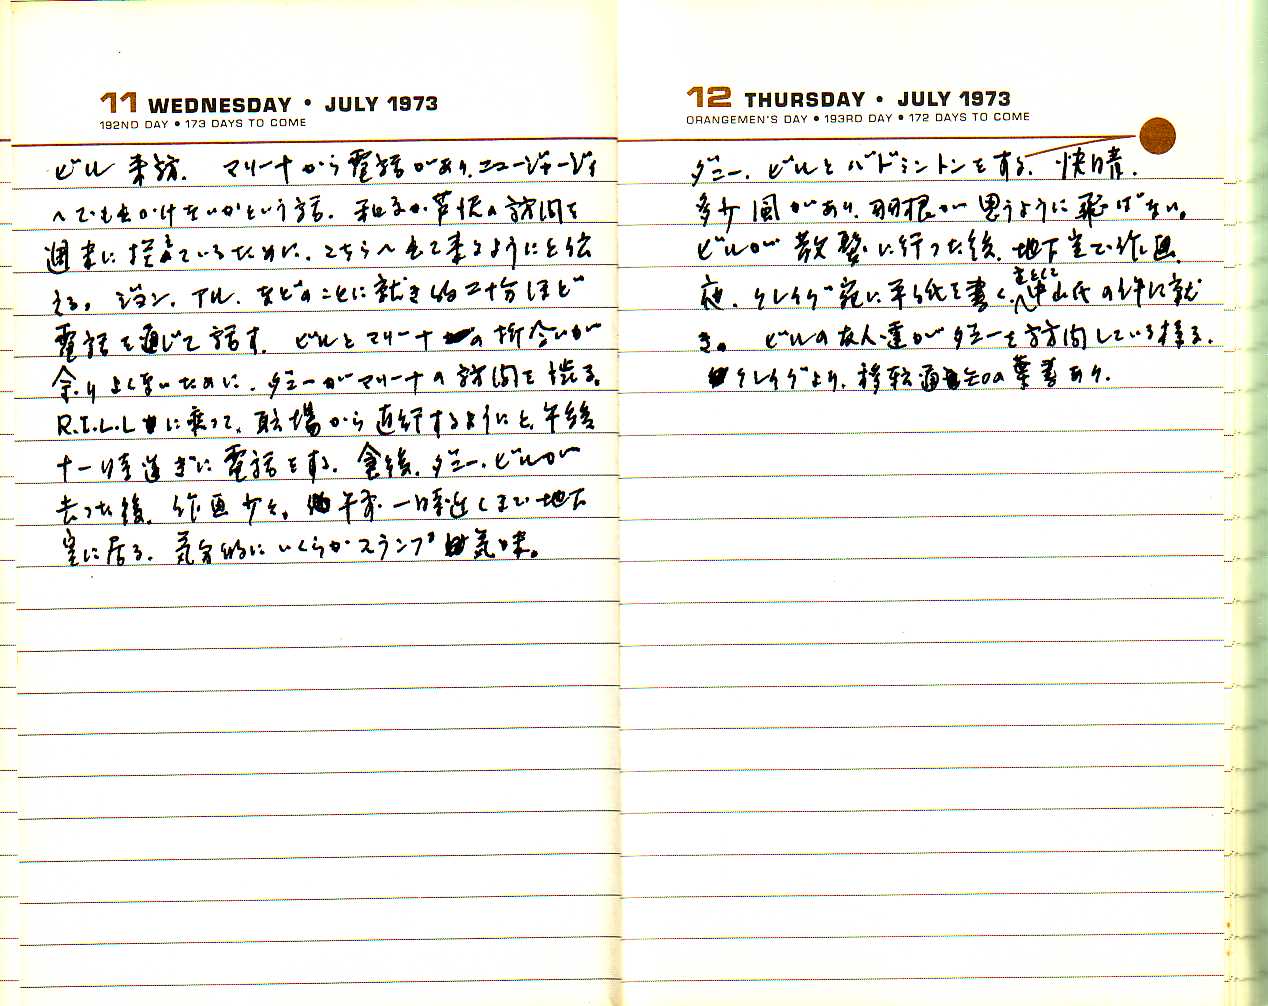 11 WEDNESDAY • JULY 1973
192ND DAY • 173 DAYS TO COME
ビル来訪. マリーナから電話があり、ニュージャージィ
へでも出かけないかという話. 和るか芦沢の訪問を
週末に控えているために、こちらへ出て来るようにと伝
える。ジョン、アル、などのことに就き約二十分ほど
電話を通じて話す. ビルとマリーナの折合いが
余りよくないために、ダニーがマリーナの訪問を渋る。
R.I.L.L.に乗って、駐場から直行するようにと、午後
十一時過ぎに電話をする. 食後、ダニー、ビルが
去った後、作画少々。午前一時近くまで地下
室に居る. 気分的にいくらかスランプ気味。
12 THURSDAY • JULY 1973
ORANGEMEN'S DAY • 193RD DAY • 172 DAYS TO COME
ダニー、ビルとバドミントンをする. 快晴.
多少風があり、羽根が思うように飛ばない。
ビルが散歩に行った後、地下室で作画.
夜、クレイグ宛に手紙を書く、中山氏の件に就
き。ビルの友人達がダニーを訪問している様子.
クレイグより、移転通知の葉書あり.